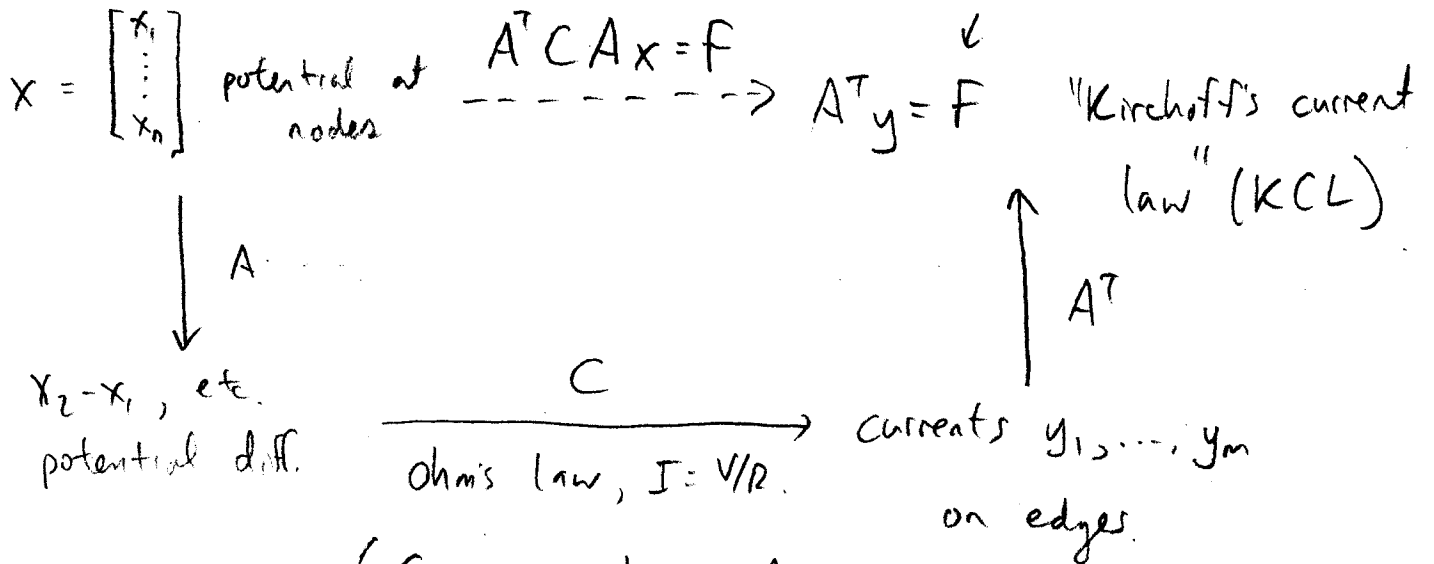 x = [x₁ ⋮ xₙ] potential at nodes
AᵀCAx = F
Aᵀy = F
"Kirchoff's current
law" (KCL)
A
Aᵀ
x₂-x₁, etc.
potential diff.
C
Ohm's law, I = V/R.
currents y₁, ..., yₘ
on edges.